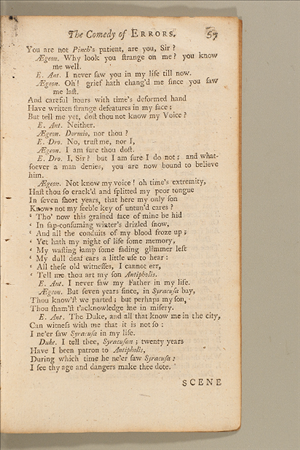 The Comedy of ERRORS. 57
You are not Pinch's patient, are you, Sir?
Ægeon. Why look you strange on me? you know
me well.
E. Ant. I never saw you in my life till now.
Ægeon. Oh! grief hath chang'd me since you saw
me last.
And careful hours with time's deformed hand
Have written strange defeatures in my face;
But tell me yet, dost thou not know my Voice?
E. Ant. Neither.
Ægeon. Dormio, nor thou?
E. Dro. No, trust me, nor I,
Ægeon. I am sure thou dost.
E. Dro. I, Sir? but I am sure I do not; and what-
soever a man denies, you are now bound to believe
him.
Ægeon. Not know my voice! oh time's extremity,
Hast thou so crack'd and splitted my poor tongue
In seven short years, that here my only son
Knows not my feeble key of untun'd cares?
‘ Tho' now this grained face of mine be hid
‘ In sap-consuming winter's drizled snow,
‘ And all the conduits of my blood froze up;
‘ Yet hath my night of life some memory,
‘ My wasting lamp some fading glimmer left
‘ My dull deaf ears a little use to hear:
‘ All these old witnesses, I cannot err,
‘ Tell me thou art my son Antipholis.
E. Ant. I never saw my Father in my life.
Ægeon. But seven years since, in Syracusa bay,
Thou know'st we parted; but perhaps my son,
Thou sham'st t'acknowledge me in misery.
E. Ant. The Duke, and all that know me in the city,
Can witness with me that it is not so:
I ne'er saw Syracusa in my life.
Duke. I tell thee, Syracusan; twenty years
Have I been patron to Antipholis,
During which time he ne'er saw Syracusa:
I see thy age and dangers make thee dote.
SCENE